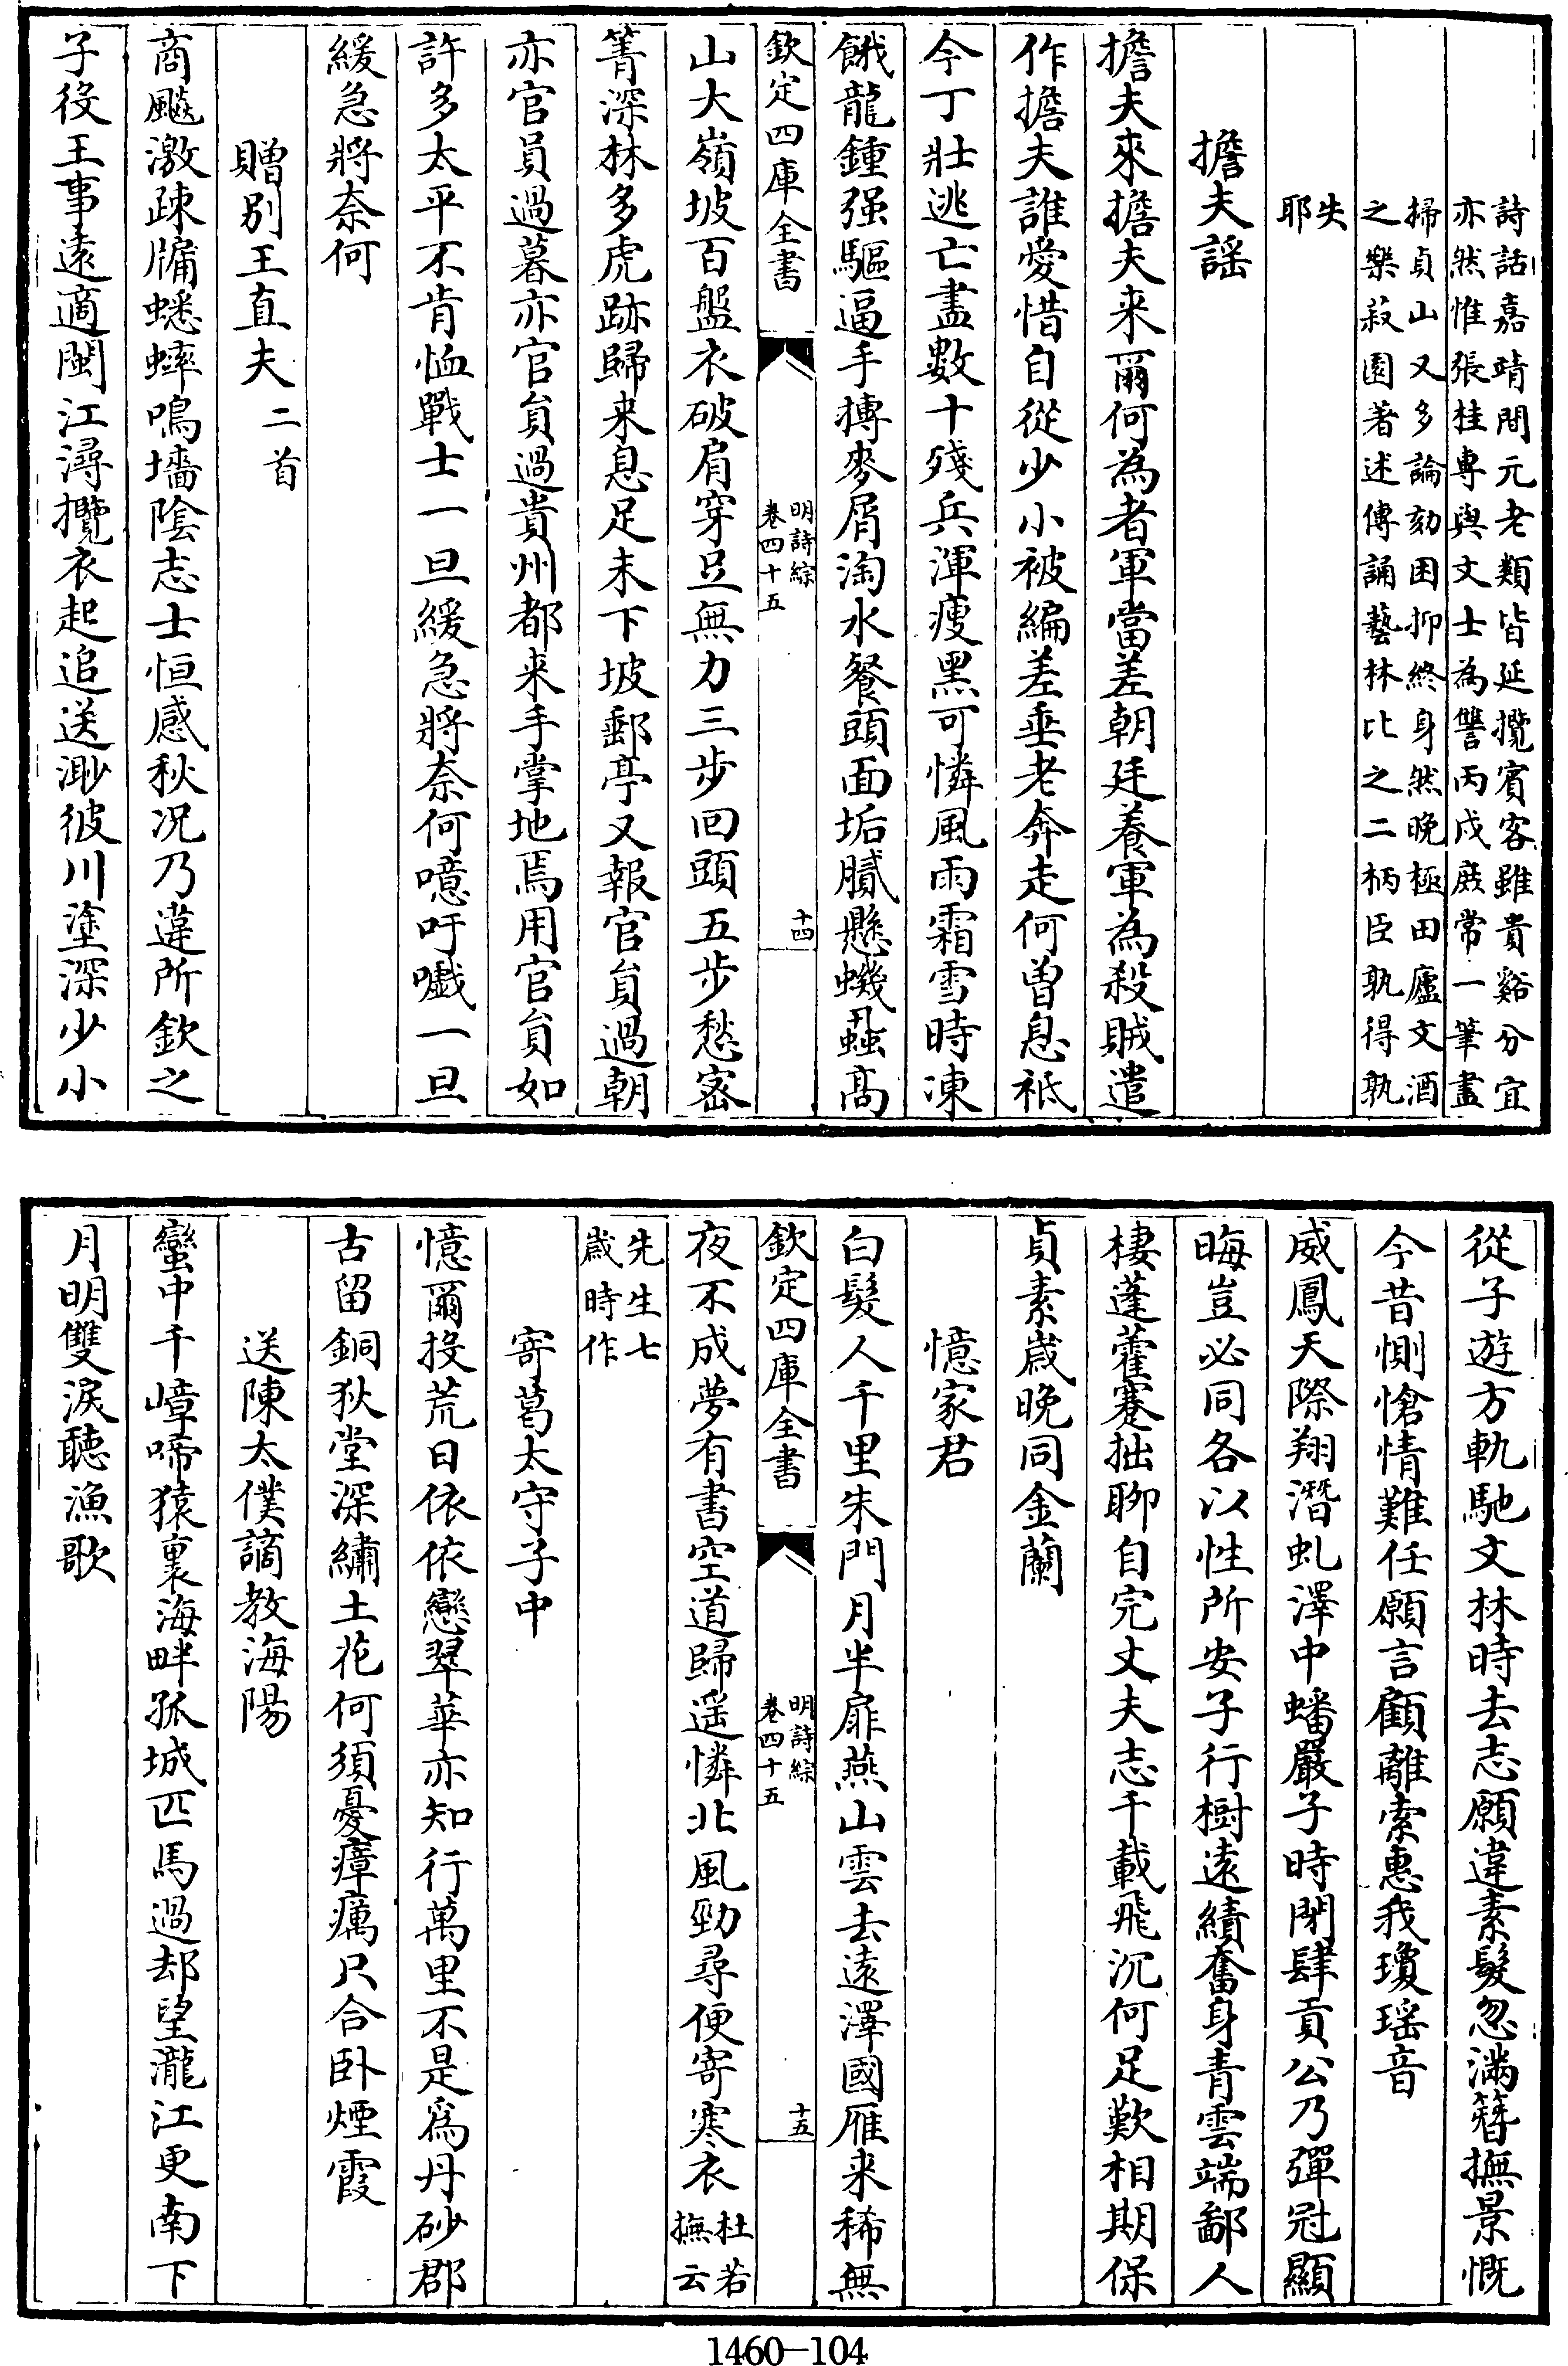 詩話嘉靖間元老類皆延攬賓客雖貴谿分宜
亦然惟張桂専與文士為讐丙戌庻常一筆盡
掃貞山又多論劾困抑終身然晚極田廬文酒
之樂菽園著述傳誦藝林比之二柄臣孰得孰
失
耶
擔夫謡
擔夫來擔夫来爾何為者軍當差朝廷養軍為殺賊遣
作擔夫誰愛惜自從少小被編差垂老奔走何曽息祗
今丁壯逃亡盡數十殘兵渾瘦黑可憐風雨霜雪時凍
餓龍鍾强驅逼手摶麥屑淘水餐頭面垢膩懸蟣蝨髙
欽定四庫全書
明詩綜
卷四十五
十四
山大嶺坡百盤衣破肩穿足無力三步回頭五步愁宻
箐深林多虎跡歸来息足未下坡郵亭又報官員過朝
亦官員過暮亦官員過貴州都来手掌地焉用官員如
許多太平不肯恤戰士一旦緩急將奈何噫吁嚱一旦
緩急將奈何
贈別王直夫二首
商飇激疎牖蟋蟀鳴墻隂志士恒感秋况乃違所欽之
子役王事逺適閩江潯攬衣起追送渺彼川塗深少小
從子遊方軌馳文林時去志願違素髮忽滿簪撫景慨
今昔惻愴情難任願言顧離索惠我瓊瑶音
威鳳天際翔潛虬澤中蟠嚴子時閉肆貢公乃彈冠顯
晦豈必同各以性所安子行樹逺績奮身青雲端鄙人
棲蓬藿蹇拙聊自完丈夫志千載飛沉何足歎相期保
貞素嵗晚同金蘭
憶家君
白髮人千里朱門月半扉燕山雲去逺澤國雁来稀無
欽定四庫全書
明詩綜
卷四十五
十五
夜不成夢有書空道歸遥憐北風勁尋便寄寒衣杜若
撫云
先生七
嵗時作
寄葛太守子中
憶爾投荒日依依戀翠華亦知行萬里不是為丹砂郡
古留銅狄堂深繡土花何須憂瘴癘只合卧煙霞
送陳太僕謫教海陽
蠻中千嶂啼猿裏海畔孤城匹馬過却望瀧江更南下
月明雙淚聽漁歌
1460—104